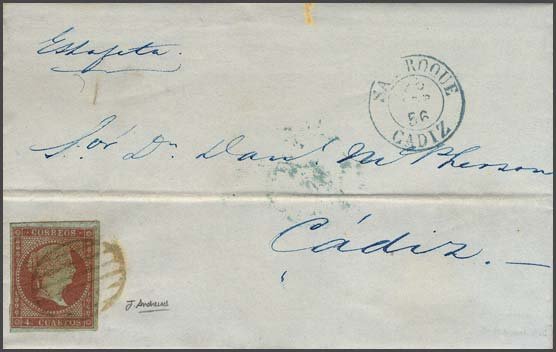 Estafeta.
SAN ROQUE
56
CADIZ
Sor. Dn. Danl. McPherson
Cádiz.—
CORREOS
4 CUARTOS
J. Andrews